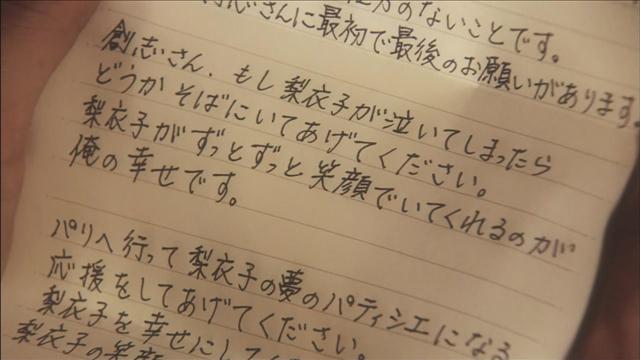 のないことです。
さんに最初で最後のお願いがあります。
創志さん、もし梨衣子が泣いてしまったら
どうかそばにいてあげてください。
梨衣子がずっとずっと笑顔でいてくれるのが
俺の幸せです。
パリへ行って梨衣子の夢のパティシエになる
応援をしてあげてください。
梨衣子を幸せにして
梨衣子の笑顔